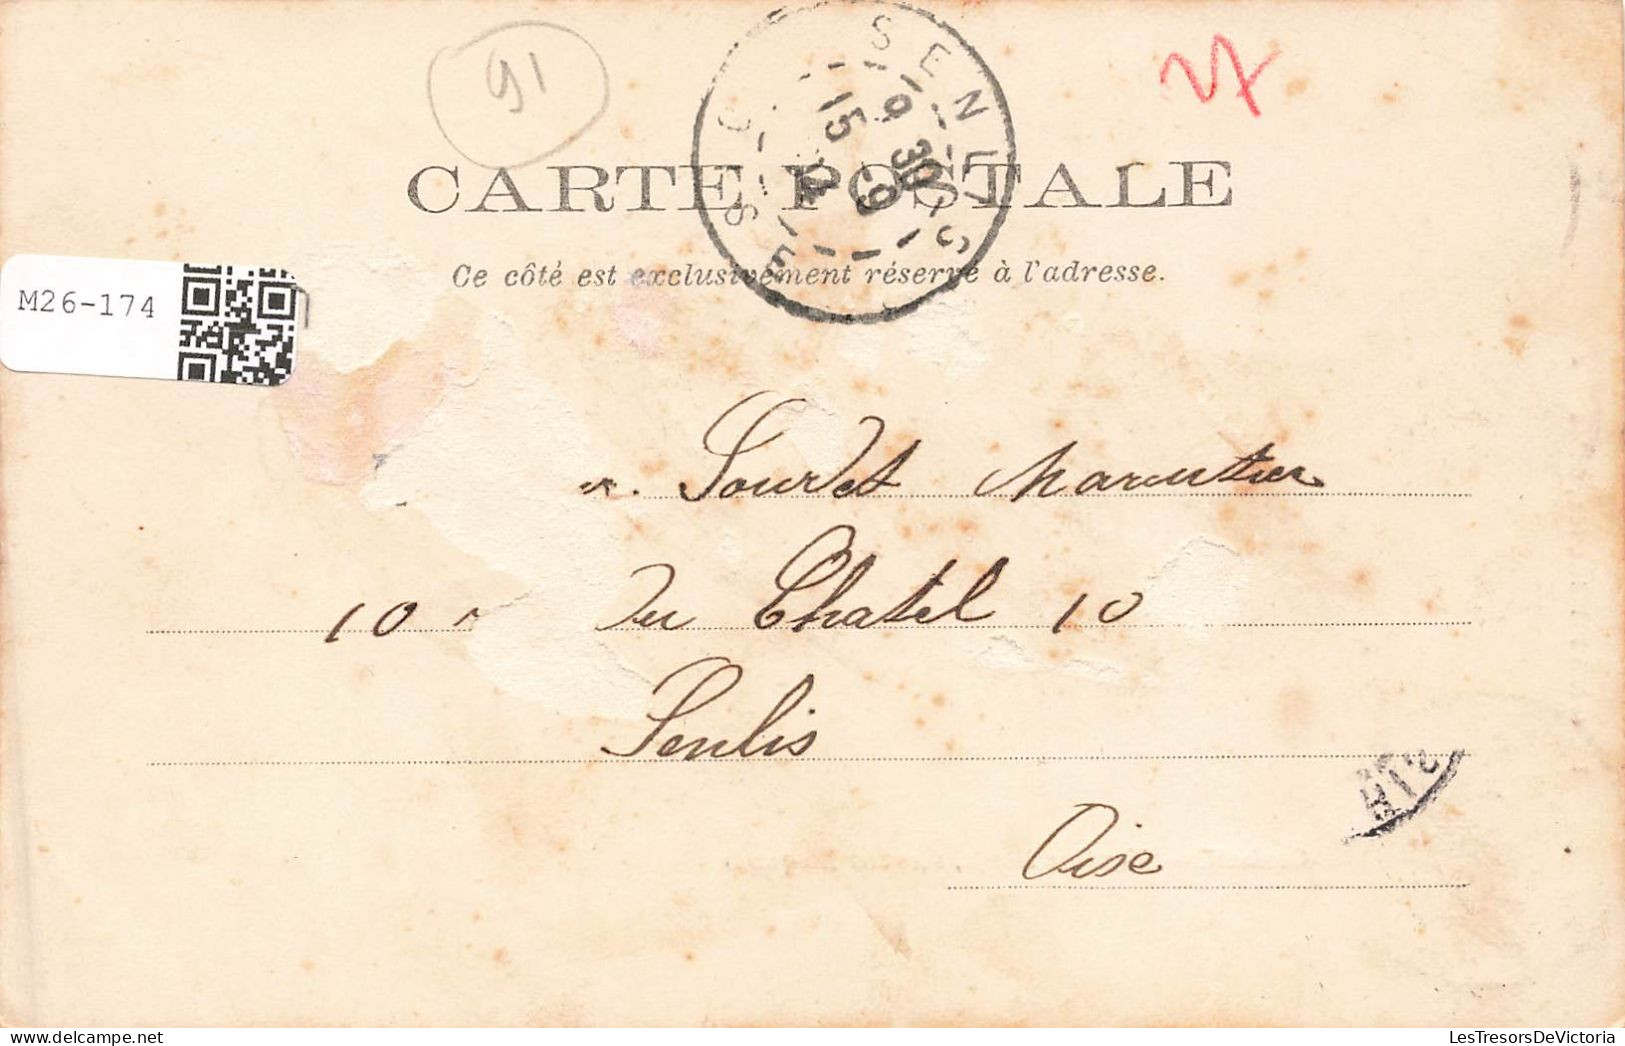 91
27
SENLIS
9 30
15 -9
OISE
CARTE POSTALE
Ce côté est exclusivement réservé à l'adresse.
M26-174
Sourdet
10 du Chatel 10
Senlis
Oise
LesTresorsDeVictoria